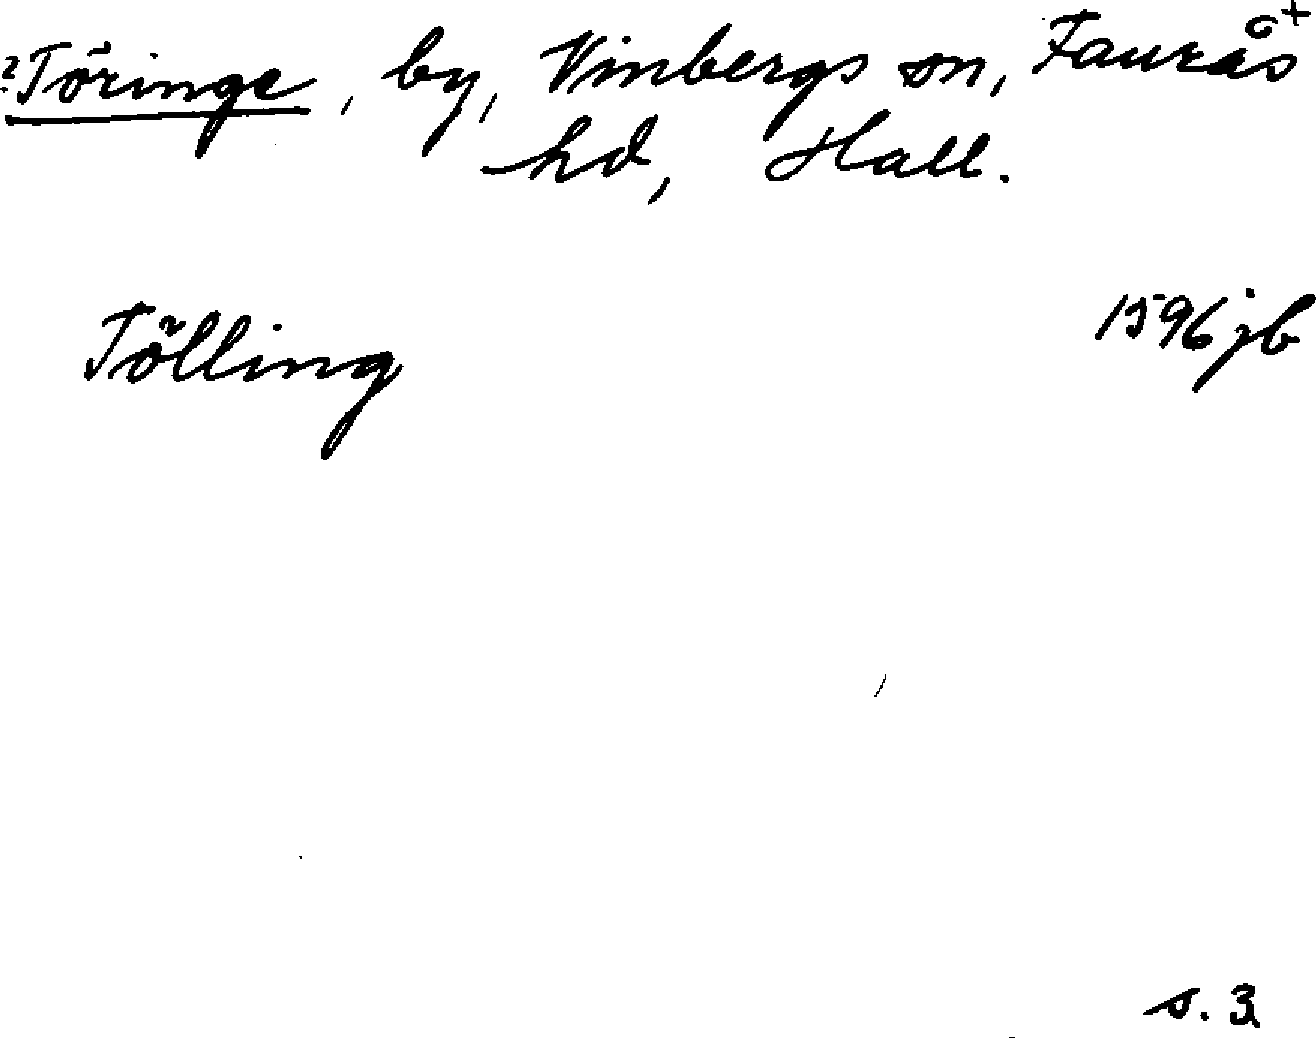 ?Töringe, by, Vinbergs sn, Faurås+
hd, Hall.
Tölling 1596 jb
s. 3